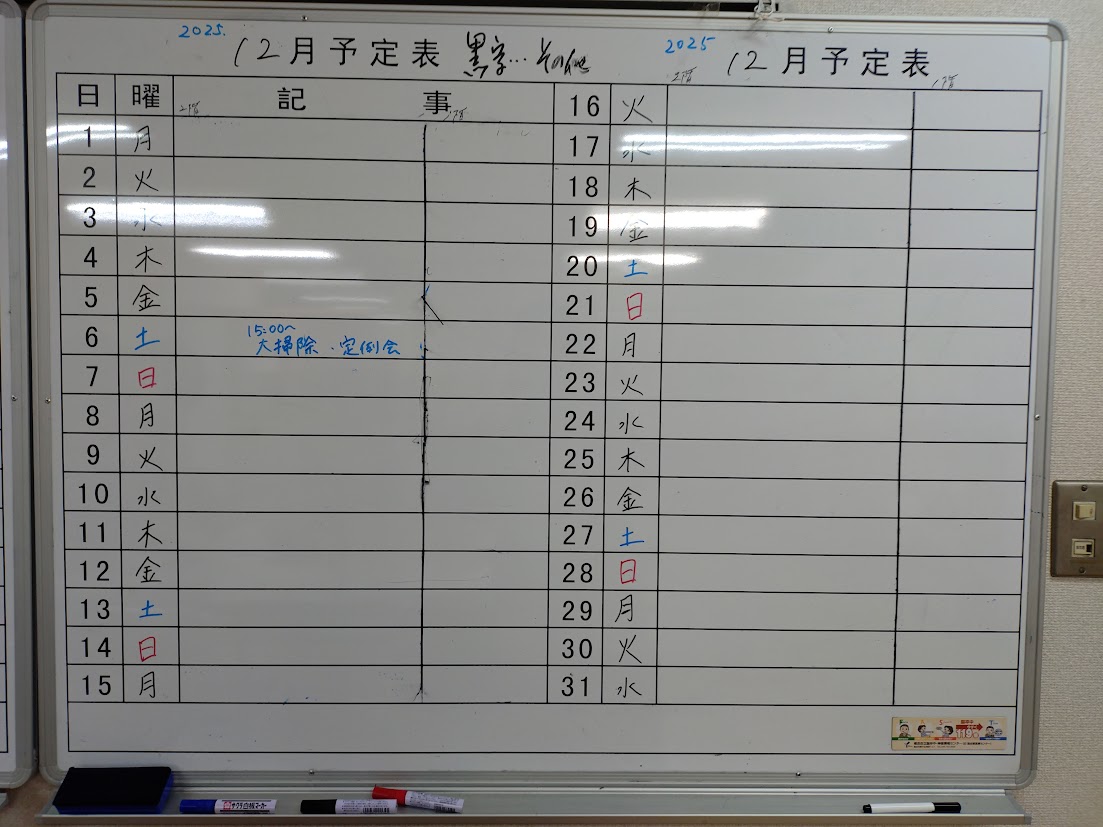 2025.
12月予定表 黒字…その他
日 曜 記事
2階 1階
1 月
2 火
3 水
4 木
5 金
6 土 15:00〜
大掃除・定例会
7 日
8 月
9 火
10 水
11 木
12 金
13 土
14 日
15 月
2025
12月予定表
2階 1階
16 火
17 水
18 木
19 金
20 土
21 日
22 月
23 火
24 水
25 木
26 金
27 土
28 日
29 月
30 火
31 水
119
サクラ白板マーカー